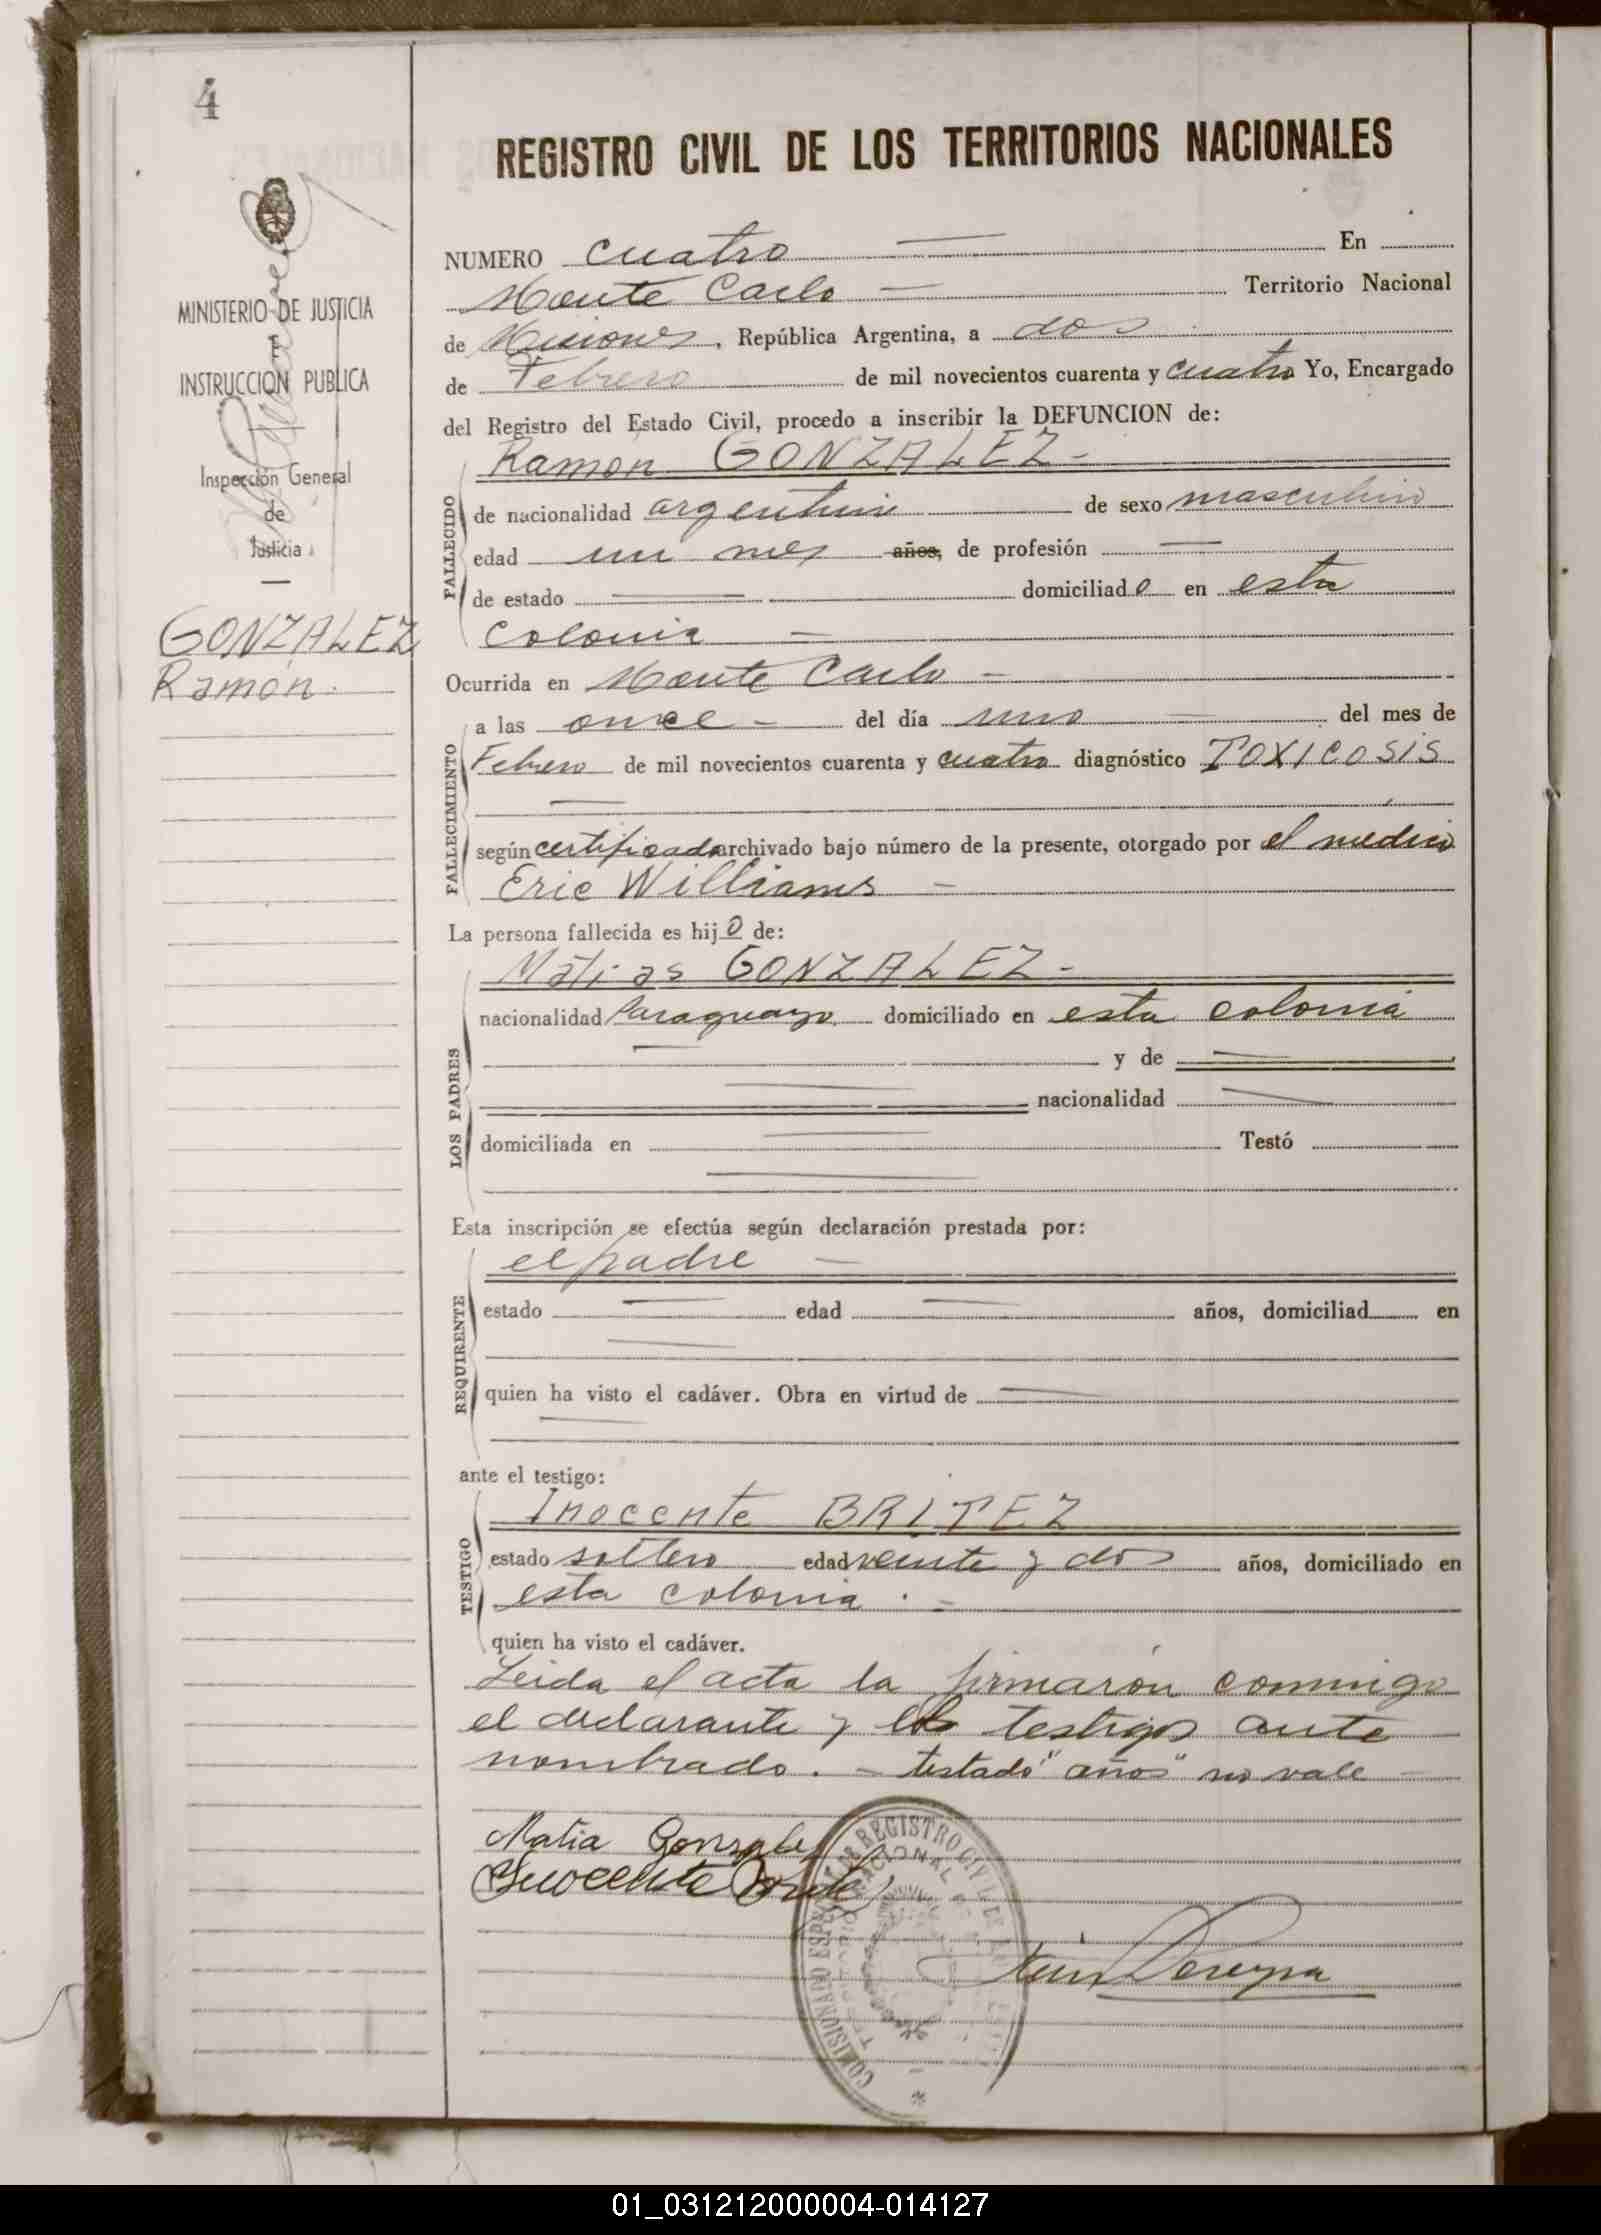 4
REGISTRO CIVIL DE LOS TERRITORIOS NACIONALES
MINISTERIO DE JUSTICIA
E
INSTRUCCION PUBLICA
Inspección General
de
Justicia
GONZALEZ
Ramon.
NUMERO cuatro — En
Monte Carlo — Territorio Nacional
de Misiones, República Argentina, a dos
de Febrero de mil novecientos cuarenta y cuatro Yo, Encargado
del Registro del Estado Civil, procedo a inscribir la DEFUNCION de:
FALLECIDO
Ramon GONZALEZ-
de nacionalidad argentino de sexo masculino
edad un mes años, de profesión —
de estado — domiciliado en esta
colonia —
Ocurrida en Monte Carlo —
FALLECIMIENTO
a las once - del día uno — del mes de
Febrero de mil novecientos cuarenta y cuatro diagnóstico TOXICOSIS
—
según certificado archivado bajo número de la presente, otorgado por el medico
Eric Williams —
La persona fallecida es hijo de:
LOS PADRES
Matias GONZALEZ-
nacionalidad Paraguayo domiciliado en esta colonia
— y de —
— nacionalidad —
domiciliada en — Testó
—
Esta inscripción se efectúa según declaración prestada por:
REQUIRENTE
el padre —
estado — edad — años, domiciliad en
—
quien ha visto el cadáver. Obra en virtud de —
—
ante el testigo:
TESTIGO
Inocente BRITEZ
estado soltero edad veinte y dos años, domiciliado en
esta colonia . -
quien ha visto el cadáver.
Leida el acta la firmarón conmigo
el declarante y testigos ante
nombrado. - testado "años" no vale —
Matia Gonzalez
Inocente Britez
Pereyra
COMISIONADO ESPECIAL DE REGISTRO CIVIL DE
01_031212000004-014127